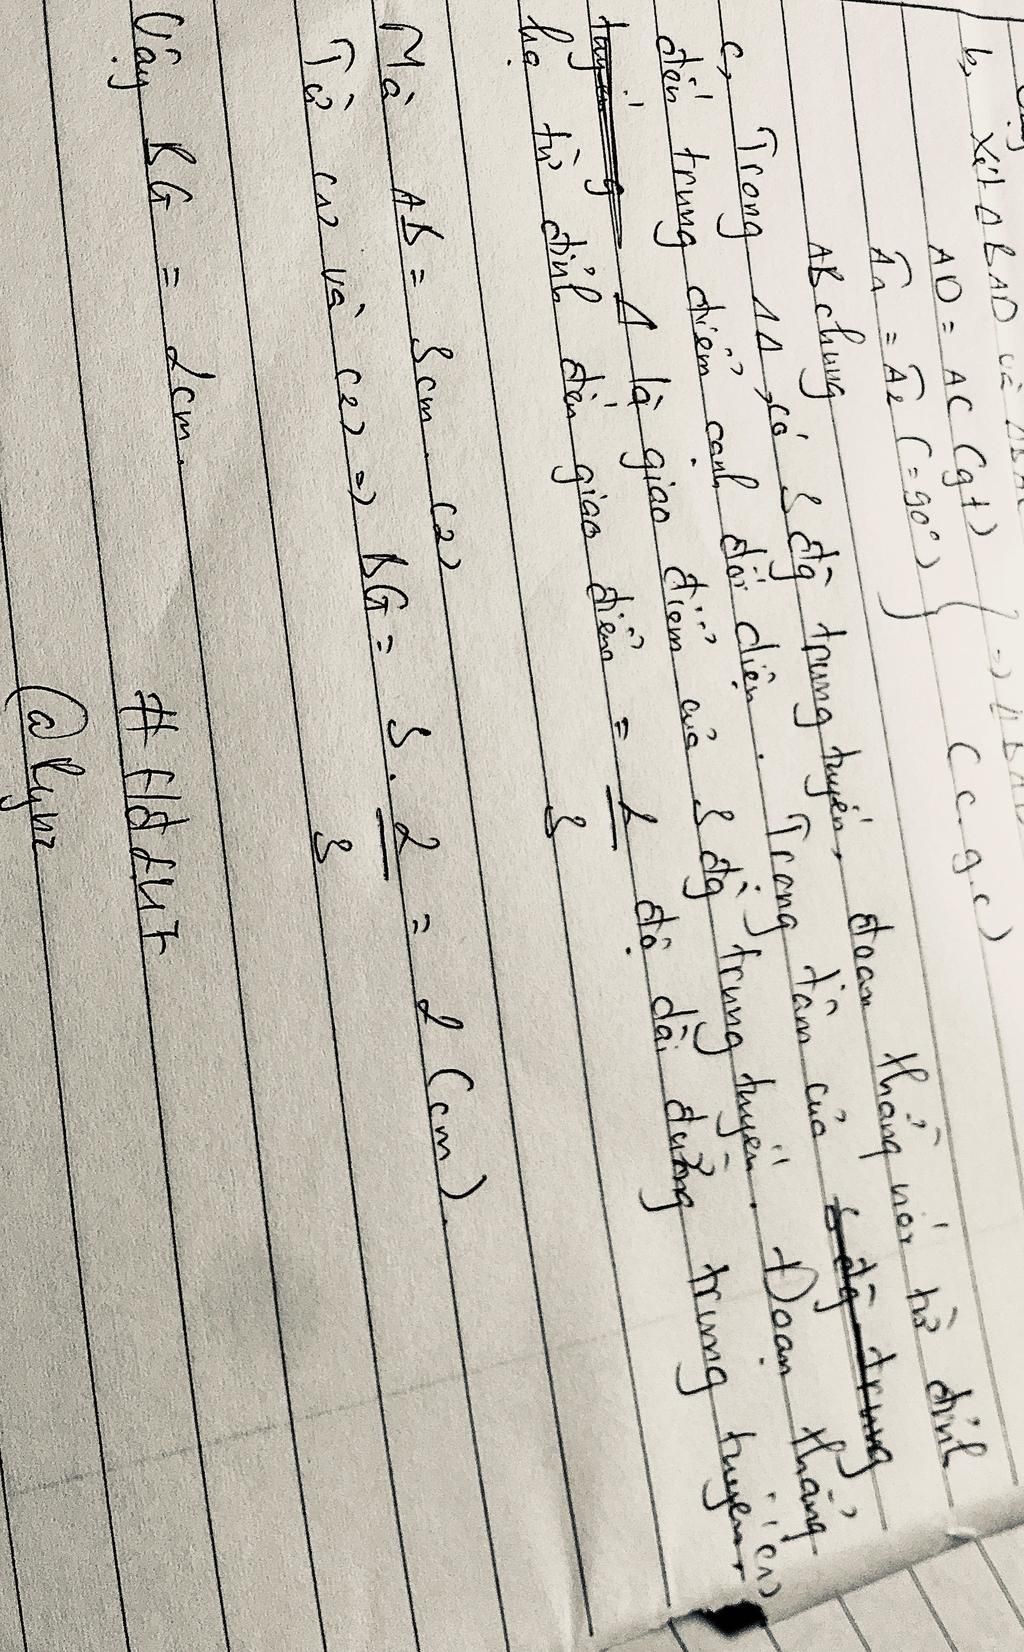 b, Xét ΔBAD và ΔBAC
AD = AC (gt)
Â1 = Â2 (= 90°) } => ΔBAD
AB chung (c.g.c)
c, Trong 1Δ, có 3 đg trung tuyến, đoạn thẳng nối từ đỉnh
đến trung điểm cạnh đối diện. Trọng tâm của 3 đg trung
tuyến g Δ là giao điểm của 3 đg trung tuyến. Đoạn thẳng
hạ từ đỉnh đến giao điểm = 2/3 độ dài đường trung tuyến. (1)
Mà AB = 3cm. (2)
Từ (1) và (2) => BG = 3. 2/3 = 2 (cm).
Vậy BG = 2cm.